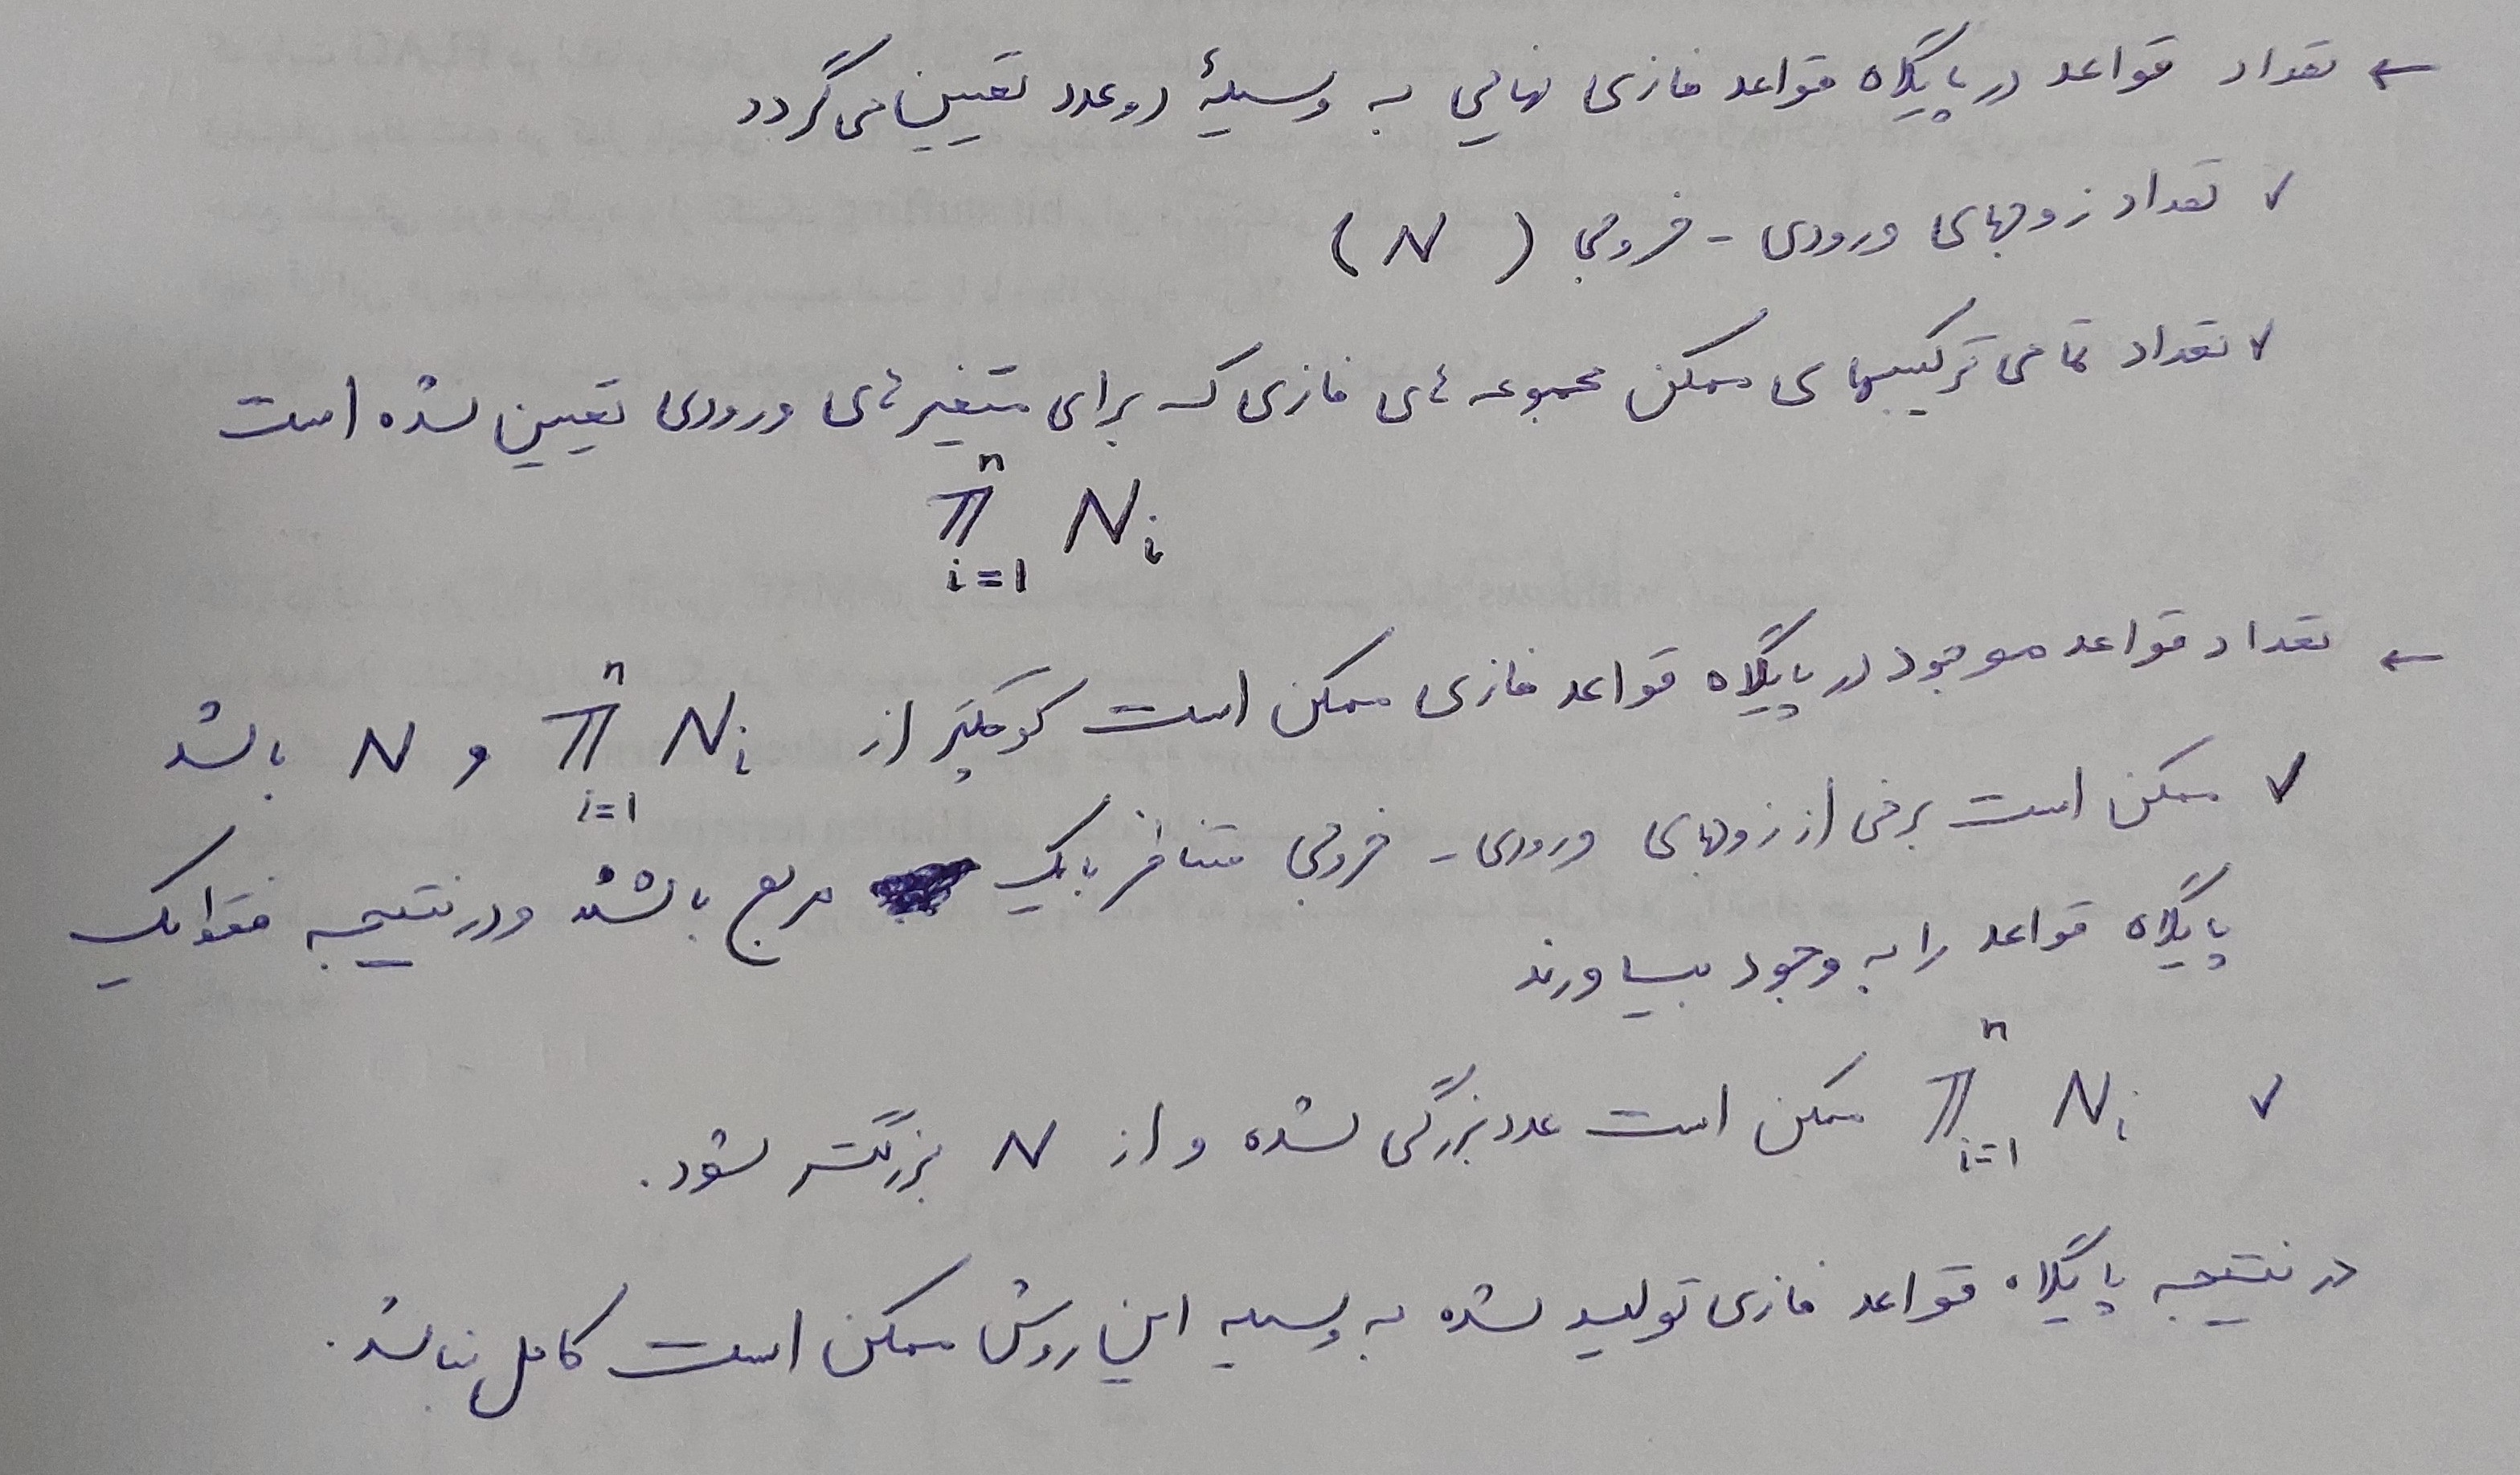 ← تعداد قواعد در پایگاه قواعد فازی نهایی به وسیلهٔ دو عدد تعیین می گردد
✓ تعداد زوجهای ورودی - خروجی (N)
✓ تعداد تمامی ترکیبهای ممکن مجموعه های فازی که برای متغیرهای ورودی تعیین شده است
n
π N_i
i=1
← تعداد قواعد موجود در پایگاه قواعد فازی ممکن است کوچکتر از π_{i=1}^{n} N_i و N باشد
✓ ممکن است برخی از زوجهای ورودی - خروجی متناظر با یک مربع باشند و در نتیجه فقط یک
پایگاه قواعد را به وجود بیاورند
✓ π_{i=1}^{n} N_i ممکن است عدد بزرگی شده و از N بزرگتر شود.
در نتیجه پایگاه قواعد فازی تولید شده به وسیله این روش ممکن است کامل نباشد.